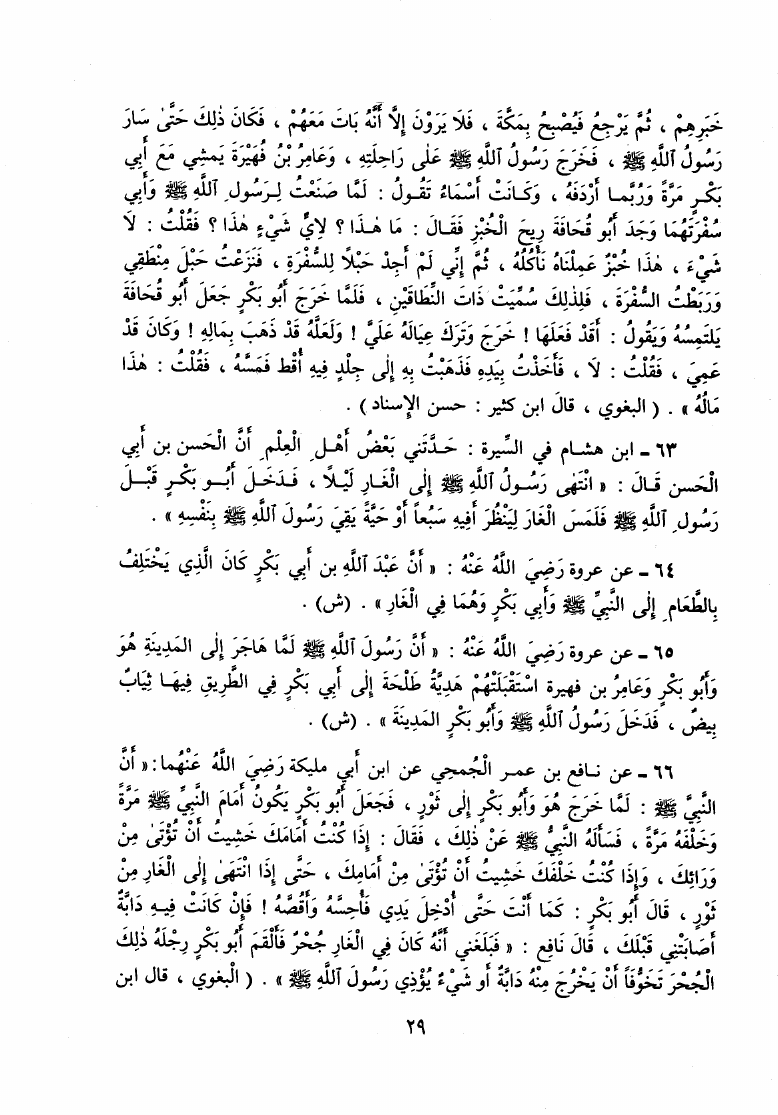 خَبَرِهِمْ ، ثُمَّ يَرْجِعُ فَيُصْبِحُ بِمَكَّةَ ، فَلَا يَرَوْنَ إِلَّا أَنَّهُ بَاتَ مَعَهُمْ ، فَكَانَ ذٰلِكَ حَتَّىٰ سَارَ
رَسُولُ ٱللَّهِ ﷺ ، فَخَرَجَ رَسُولُ ٱللَّهِ ﷺ عَلى رَاحِلَتِهِ ، وَعَامِرُ بْنُ فُهَيْرَةَ يَمشِي مَعَ أَبِي
بَكْرٍ مَرَّةً وَرُبَّمَا أَرْدَفَهُ ، وَكَانَتْ أَسْمَاءُ تَقُولُ : لَمَّا صَنَعْتُ لِرَسُولِ ٱللَّهِ ﷺ وَأَبِي
سُفْرَتَهُمَا وَجَدَ أَبُو قُحَافَةَ رِيحَ الْخُبْزِ فَقَالَ : مَا هٰذَا ؟ لِايِّ شَيْءٍ هٰذَا ؟ فَقُلْتُ : لَا
شَيْءَ ، هٰذَا خُبْزٌ عَمِلْنَاهُ نَأْكُلُهُ ، ثُمَّ إِنِّي لَمْ أَجِدْ حَبْلًا لِلسُّفْرَةِ ، فَنَزَعْتُ حَبْلَ مِنْطَقِي
وَرَبَطْتُ السُّفْرَةَ ، فَلِذٰلِكَ سُمِّيَتْ ذَاتَ النِّطَاقَيْنِ ، فَلَمَّا خَرَجَ أَبُو بَكْرٍ جَعَلَ أَبُو قُحَافَةَ
يَلتَمِسُهُ وَيَقُولُ : أَقَدْ فَعَلَهَا ! خَرَجَ وَتَرَكَ عِيَالَهُ عَلَيَّ ! وَلَعَلَّهُ قَدْ ذَهَبَ بِمَالِهِ ! وَكَانَ قَدْ
عَمِيَ ، فَقُلْتُ : لَا ، فَأَخَذْتُ بِيَدِهِ فَذَهَبْتُ بِهِ إِلى جِلْدٍ فِيهِ أَقْط فَمَسَّهُ ، فَقُلْتُ : هٰذَا
مَالُهُ » . ( البغوي ، قالَ ابن كثير : حسن الإِسناد ) .
٦٣ ـ ابن هشام في السِّيرة : حَدَّثَنِي بَعْضُ أَهْلِ الْعِلْمِ أَنَّ الْحَسن بن أَبِي
الْحَسن قَالَ : « انْتَهٰى رَسُولُ ٱللَّهِ ﷺ إِلى الْغَارِ لَيْلًا ، فَدَخَلَ أَبُو بَكْرٍ قَبْلَ
رَسُولِ ٱللَّهِ ﷺ فَلَمَسَ الْغَارَ لِيَنْظُرَ أَفِيهِ سَبُعاً أَوْ حَيَّةً يَقِيَ رَسُولَ ٱللَّهِ ﷺ بِنَفْسِهِ » .
٦٤ ـ عن عروة رَضِيَ اللَّهُ عَنْهُ : « أَنَّ عَبْدَ ٱللَّهِ بن أَبِي بَكْرٍ كَانَ الَّذِي يَخْتَلِفُ
بِالطَّعَامِ إِلى النَّبِيِّ ﷺ وَأَبِي بَكْرٍ وَهُمَا فِي الْغَارِ » . (ش) .
٦٥ ـ عن عروة رَضِيَ اللَّهُ عَنْهُ : « أَنَّ رَسُولَ ٱللَّهِ ﷺ لَمَّا هَاجَرَ إِلى المَدِينَةِ هُوَ
وَأَبُو بَكْرٍ وَعَامِرُ بن فهيرة اسْتَقْبَلَتْهُمْ هَدِيَّةُ طَلْحَةَ إِلى أَبِي بَكْرٍ فِي الطَّرِيقِ فِيهَا ثِيَابٌ
بِيضٌ ، فَدَخَلَ رَسُولُ ٱللَّهِ ﷺ وَأَبُو بَكْرٍ المَدِينَةَ » . (ش) .
٦٦ ـ عن نافع بن عمر الْجُمحِي عن ابن أَبِي مليكة رَضِيَ اللَّهُ عَنْهُما : « أَنَّ
النَّبِيَّ ﷺ : لَمَّا خَرَجَ هُوَ وَأَبُو بَكْرٍ إِلى ثَوْرٍ ، فَجَعَلَ أَبُو بَكْرٍ يَكُونُ أَمَامَ النَّبِيِّ ﷺ مَرَّةً
وَخَلْفَهُ مَرَّةً ، فَسَأَلَهُ النَّبِيُّ ﷺ عَنْ ذٰلِكَ ، فَقَالَ : إِذَا كُنْتُ أَمَامَكَ خَشِيتُ أَنْ تُؤْتَىٰ مِنْ
وَرَائِكَ ، وَإِذَا كُنْتُ خَلْفَكَ خَشِيتُ أَنْ تُؤْتَىٰ مِنْ أَمَامِكَ ، حَتَّى إِذَا انْتَهَىٰ إِلى الْغَارِ مِنْ
ثَوْرٍ ، قَالَ أَبُو بَكْرٍ : كَمَا أَنْتَ حَتَّى أُدْخِلَ يَدِي فَأُحِسَّهُ وَأَقُصَّهُ ! فَإِنْ كَانَتْ فِيهِ دَابَّةٌ
أَصَابَتْنِي قَبْلَكَ ، قَالَ نَافِع : « فَبَلَغَنِي أَنَّهُ كَانَ فِي الْغَارِ جُحْرٌ فَأَلْقَمَ أَبُو بَكْرٍ رِجْلَهُ ذٰلِكَ
الْجُحْرَ تَخَوُّفاً أَنْ يَخْرُجَ مِنْهُ دَابَّةٌ أَو شَيْءٌ يُؤْذِي رَسُولَ ٱللَّهِ ﷺ » . ( الْبغوي ، قال ابن
٢٩